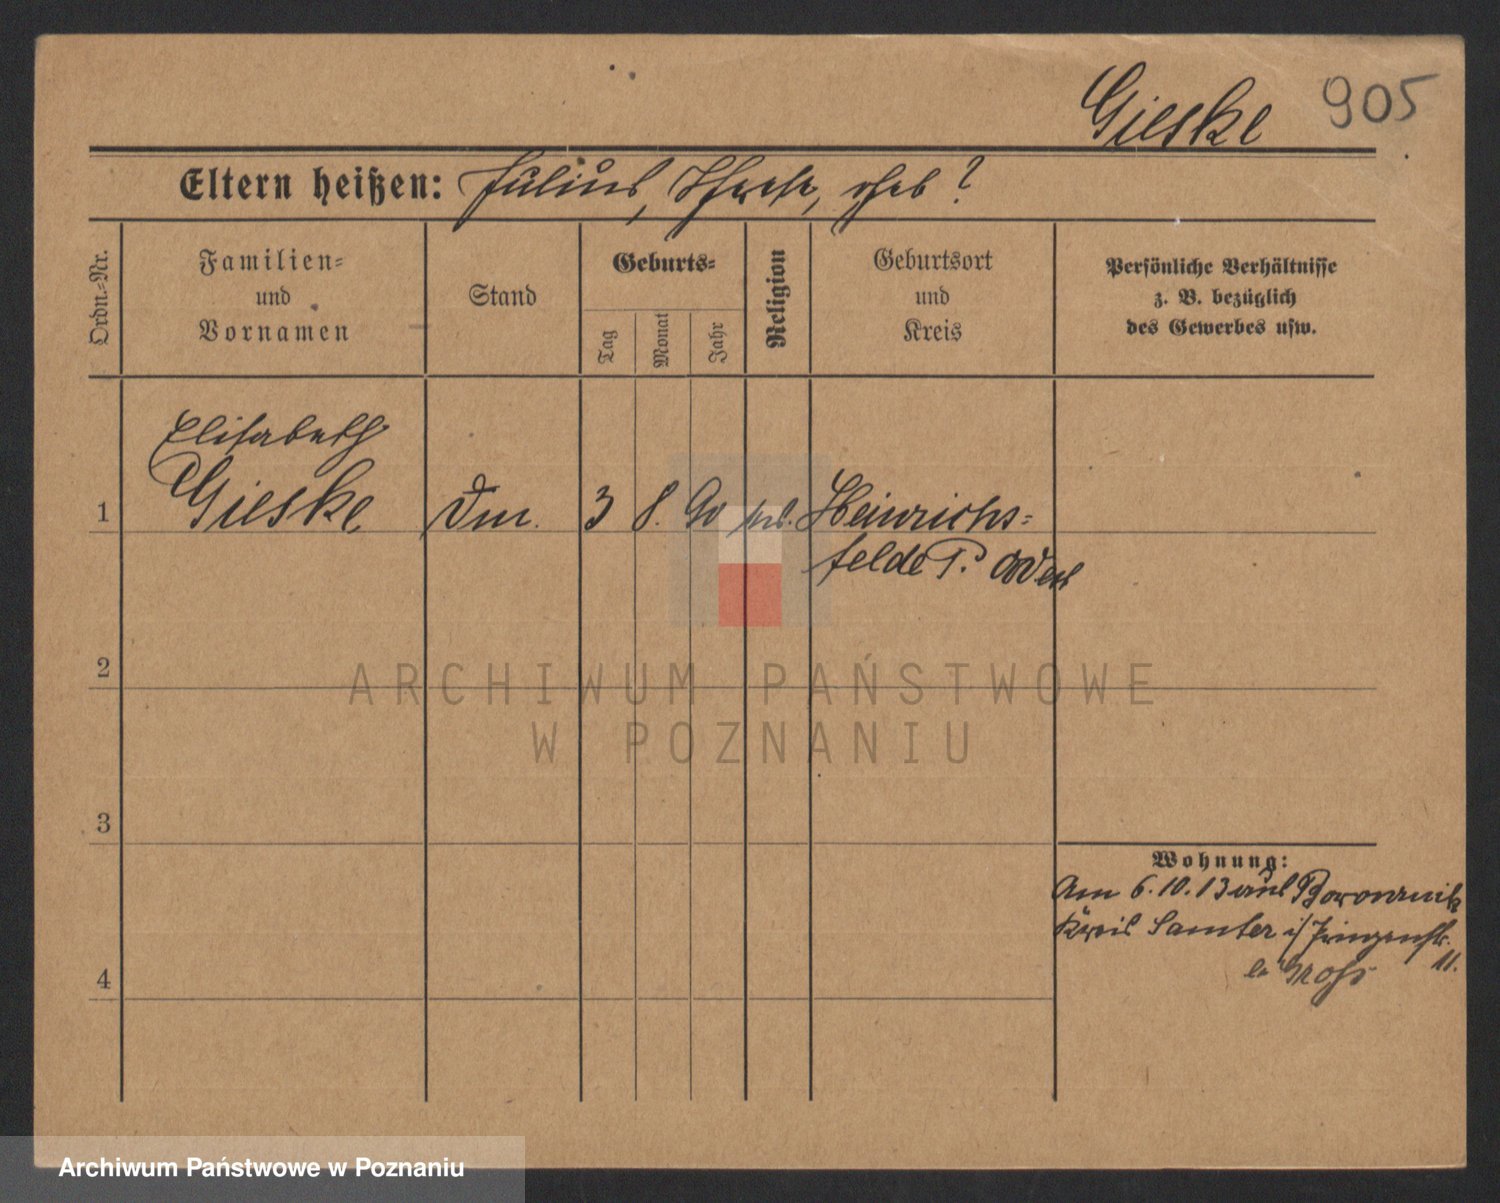 Gieske 905
Eltern heißen: Julius, Therese, geb?
Ordn.=Nr.
Familien=
und
Vornamen
Stand
Geburts=
Tag
Monat
Jahr
Religion
Geburtsort
und
Kreis
Persönliche Verhältnisse
z. B. bezüglich
des Gewerbes usw.
Elisabeth
1 Gieske 3 8. 90 Heinrichs=
felde P.
2
ARCHIWUM PAŃSTWOWE
W POZNANIU
3
Wohnung:
Am 6.10.13 aus
Kreis Samter
11.
4
Archiwum Państwowe w Poznaniu